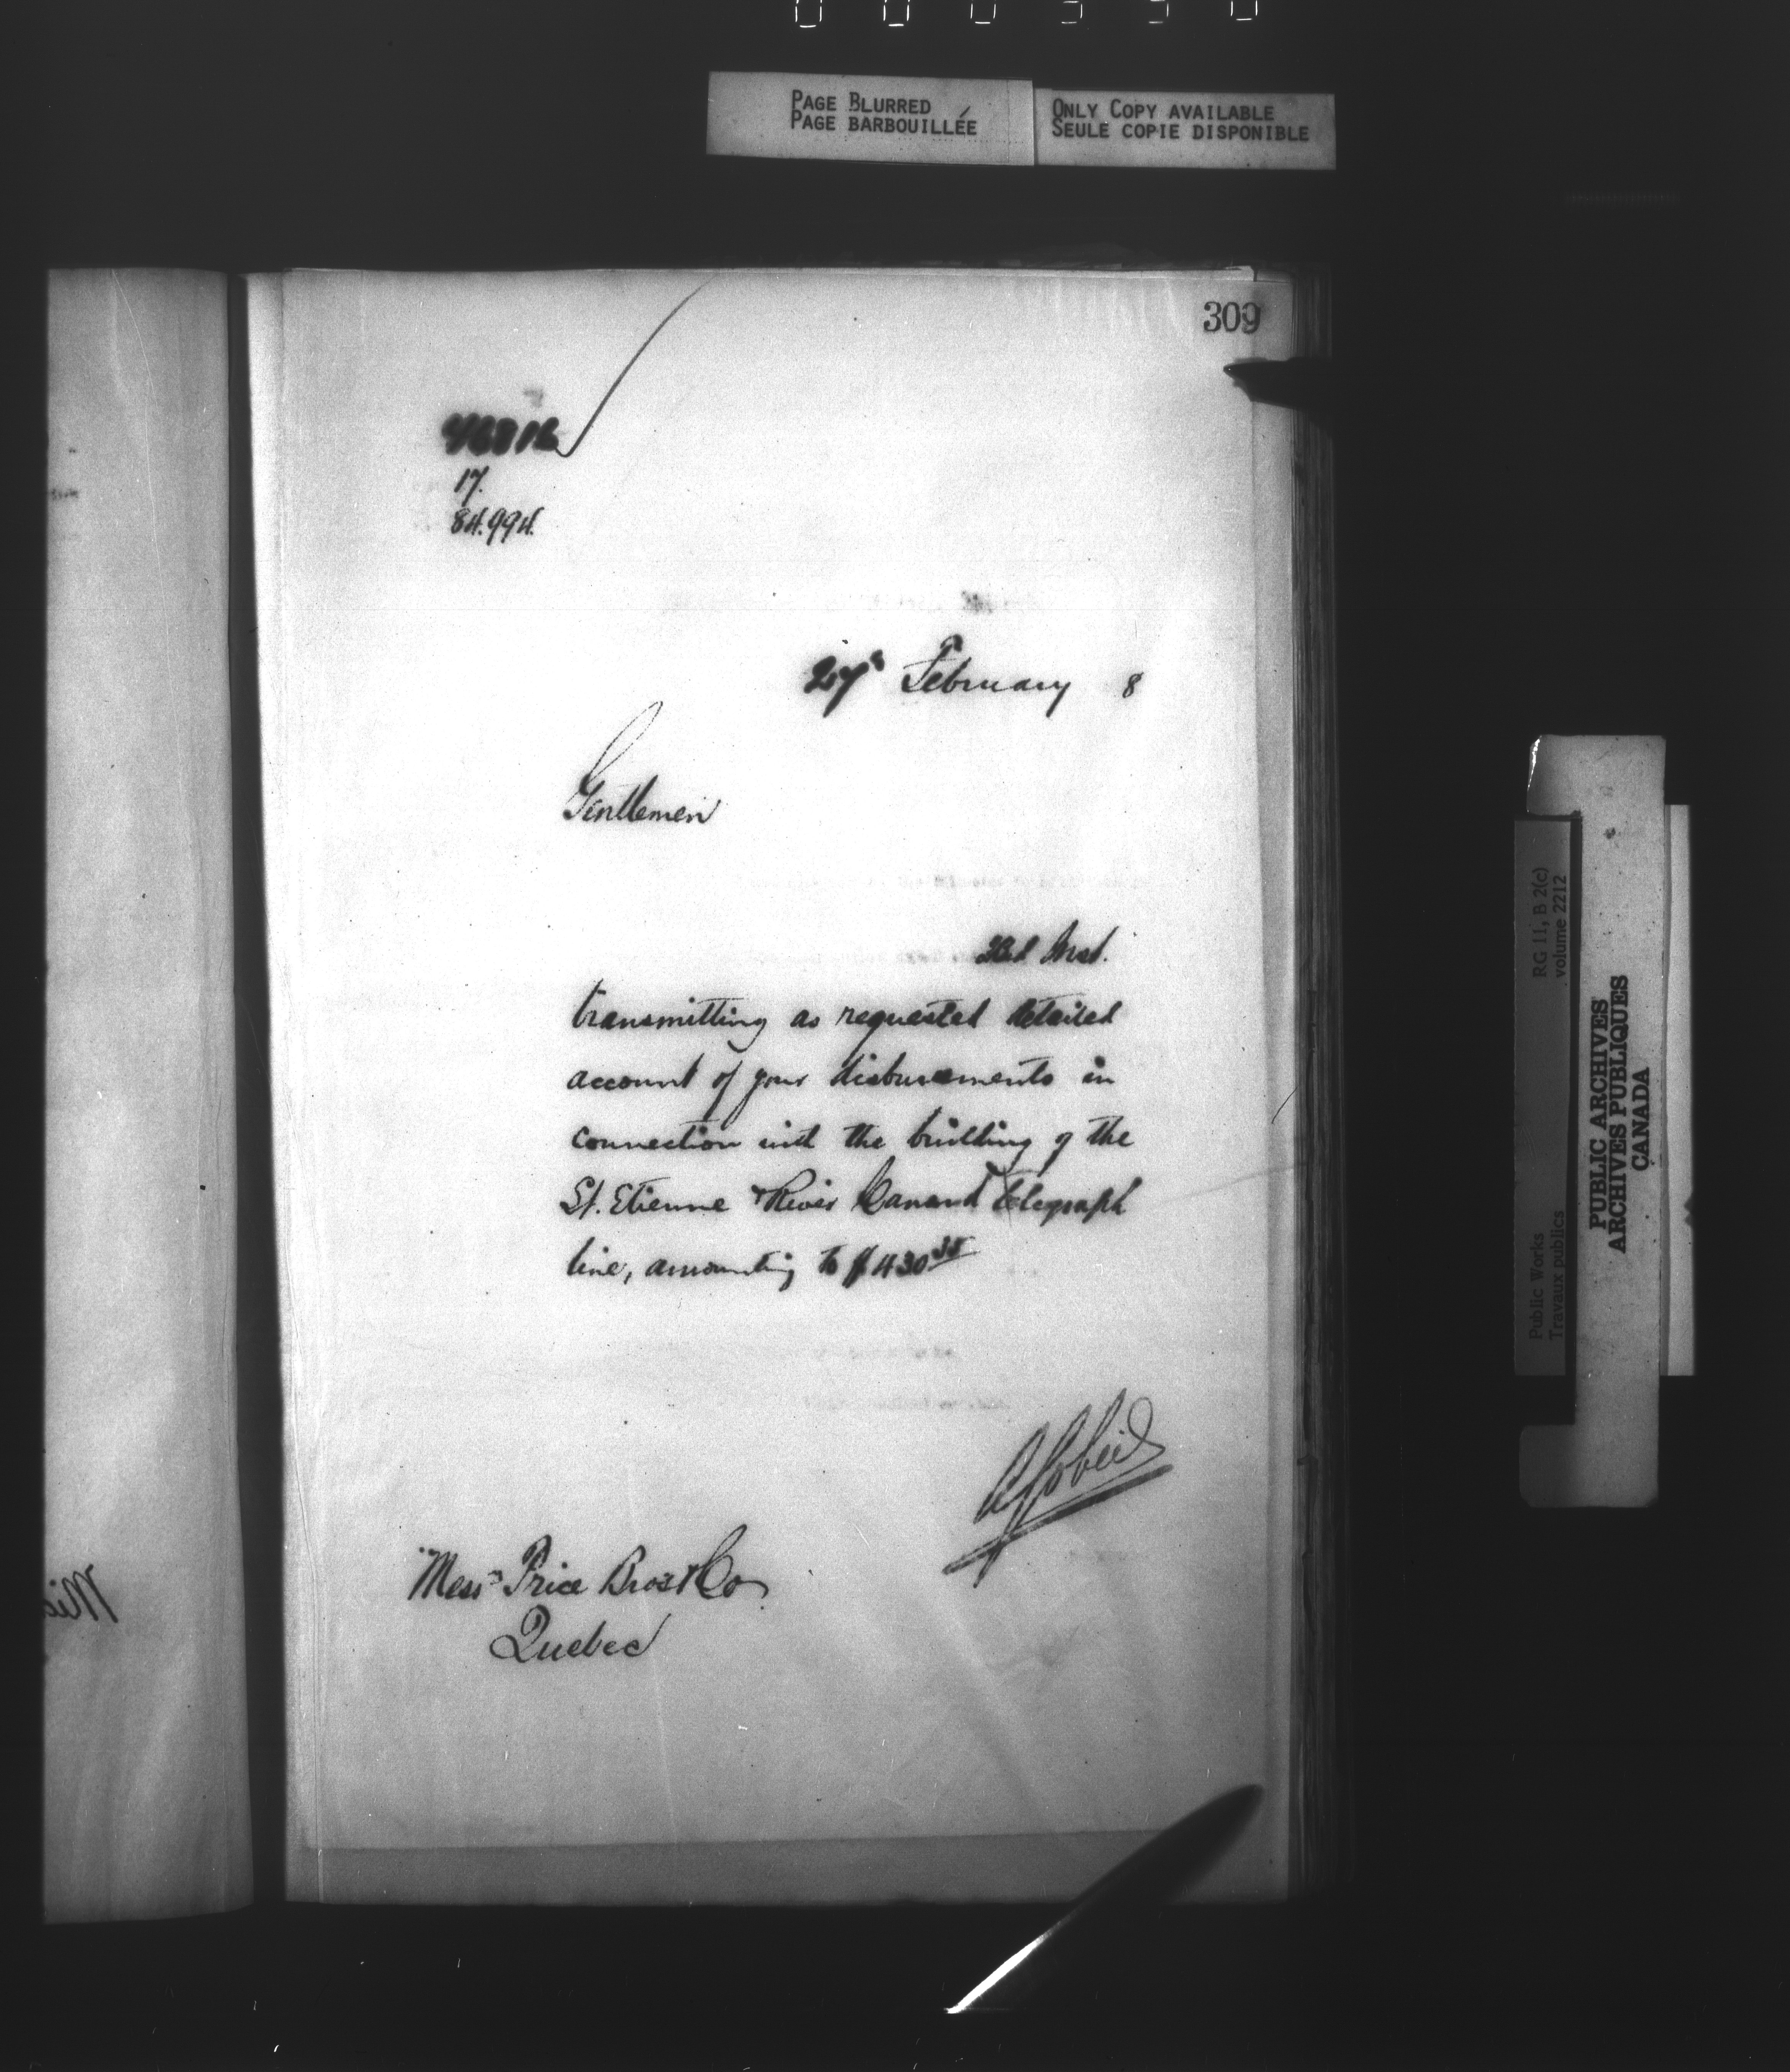 PAGE BLURRED
PAGE BARBOUILLÉE
ONLY COPY AVAILABLE
SEULE COPIE DISPONIBLE
309
17.
84.994.
27th February 8
Gentlemen
Inst.
transmitting as requested detailed
account of your disbursements in
connection with the building of the
St. Etienne & River Canard telegraph
line, amounting to $430 35
AGobeil
Messrs Price Bros & Co.
Quebec
RG 11, B 2(c)
volume 2212
Public Works
Travaux publics
PUBLIC ARCHIVES
ARCHIVES PUBLIQUES
CANADA